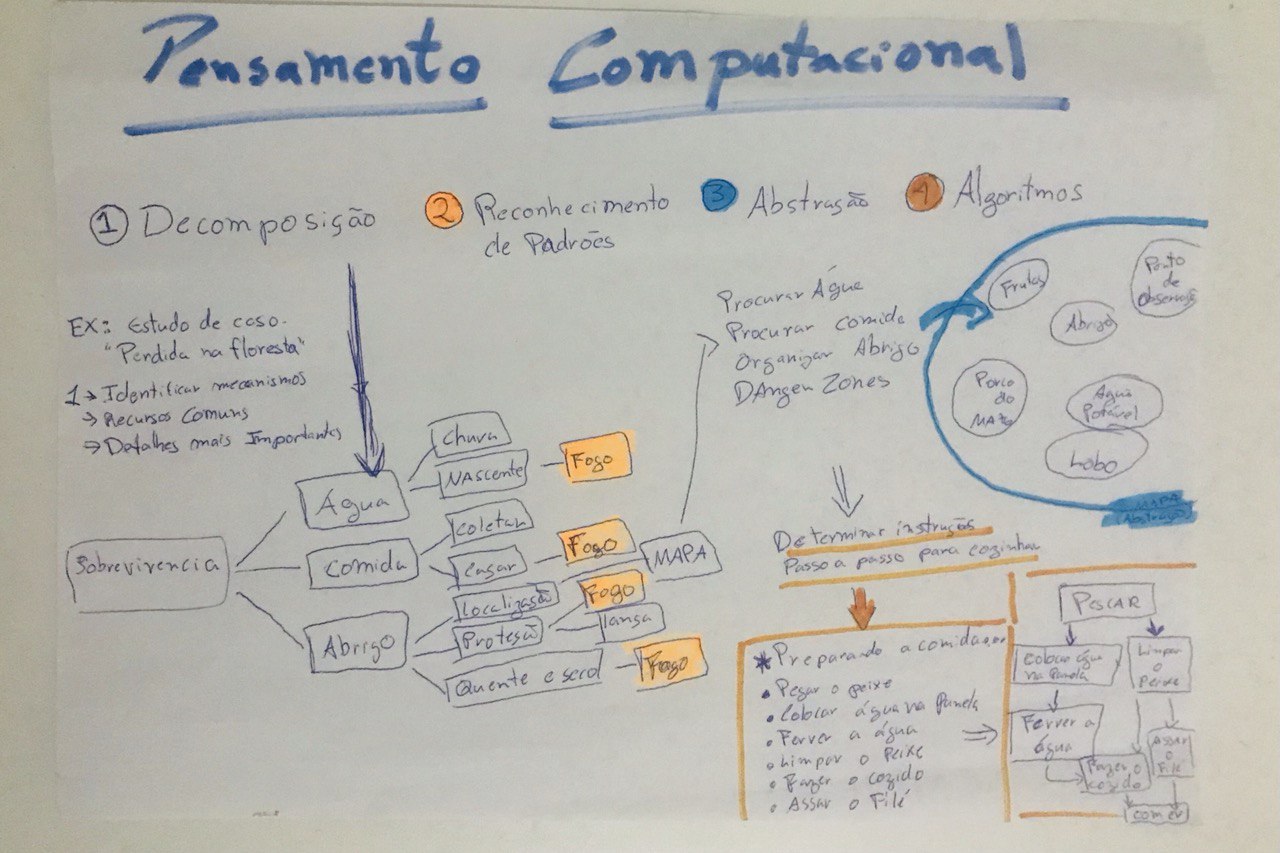 Pensamento Computacional
1 Decomposição
2 Reconhecimento
de Padrões
3 Abstração
4 Algoritmos
EX: Estudo de caso.
"Perdida na floresta"
1 → Identificar mecanismos
→ Recursos Comuns
→ Detalhes mais Importantes
Sobrevivencia
Água
Comida
Abrigo
Chuva
NAscente
Coletar
Caçar
Localização
Proteção
Quente e seco
Fogo
Fogo
Fogo
lança
Fogo
MAPA
Procurar Água
Procurar comida
Organizar Abrigo
DAnger Zones
Frutas
Ponto
de
Abrigo
Porco
do
MAto
Agua
Potável
Lobo
MAPA
Abstração
Determinar instruções
Passo a passo para cozinhar
* Preparando a comida
• Pegar o peixe
• Colocar água na Panela
• Ferver a água
• Limpar o Peixe
• Fazer o cozido
• Assar o Filé
PESCAR
Colocar água
na Panela
Limpar
o
Peixe
Ferver a
água
Assar
o
Filé
Fazer o
cozido
comer